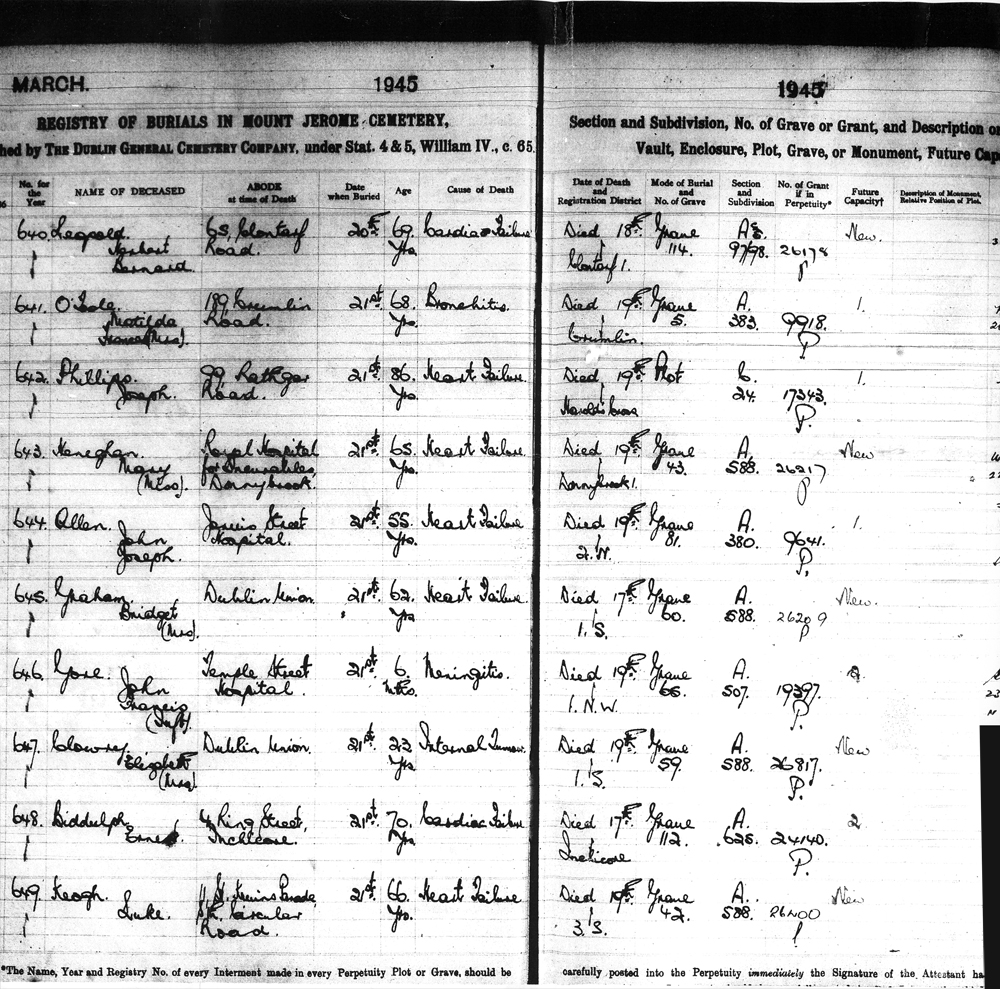 MARCH. 1945
REGISTRY OF BURIALS IN MOUNT JEROME CEMETERY,
hed by THE DUBLIN GENERAL CEMETERY COMPANY, under Stat. 4 & 5, William IV., c. 65.
No. for the Year NAME OF DECEASED ABODE at time of Death Date when Buried Age Cause of Death
640. Leopold. 65, Clontarf 20th 69 Cardiac Failure
Herbert Road. Yrs.
Bernard.
641. O'Toole 189 Crumlin 21st 68. Bronchitis.
Matilda Road. Yrs.
Frances (Mrs).
642. Phillips. 99, Rathgar 21st 86. Heart Failure.
Joseph. Road. Yrs.
643. Heneghan. Royal Hospital 21st 65. Heart Failure.
Mary for Incurables, Yrs.
(Miss). Donnybrook.
644. Allen. Jervis Street 21st 55. Heart Failure
John Hospital. Yrs.
Joseph.
645. Graham. Dublin Union. 21st 62. Heart Failure.
Bridget Yrs
(Mrs).
646. Gore. Temple Street 21st 6 Meningitis.
John Hospital. Mths.
Francis
(Inft).
647. Clowry. Dublin Union. 21st 23 Internal Tumour.
Elizabeth Yrs
(Mrs).
648. Biddulph 4, Ring Street, 21st 70. Cardiac Failure
Ernest. Inchicore. Yrs.
649. Keogh. 11, St. Kevins Parade, 21st 66 Heart Failure
Luke. Sth. Circular Yrs.
Road.
*The Name, Year and Registry No. of every Interment made in every Perpetuity Plot or Grave, should be
1945
Section and Subdivision, No. of Grave or Grant, and Description or
Vault, Enclosure, Plot, Grave, or Monument, Future Cap
Date of Death and Registration District Mode of Burial and No. of Grave Section and Subdivision No. of Grant if in Perpetuity* Future Capacity† Description of Monument, Relative Position of Plot.
Died 18th Grave A. New.
114. 97/98. 26178
Clontarf 1. P
Died 19th Grave A. 1.
5. 383. 9918.
Crumlin. P
Died 19th Plot C. 1.
24. 17343.
Harold's Cross P.
Died 19th Grave A. New
43. 588. 26217
Donnybrook 1. P
Died 19th Grave A. 1.
81. 380. 9641.
2. N. P.
Died 17th Grave A. New.
60. 588. 26209
1. S. P
Died 19th Grave A. 2.
66. 507. 19397.
1. N. W. P.
Died 19th Grave A. New
59. 588. 26817.
1. S. P.
Died 17th Grave A. 2
112. 625. 24140.
Inchicore P.
Died 19th Grave A. New
42. 588. 26400
3. S. P
carefully posted into the Perpetuity immediately the Signature of the Attestant ha